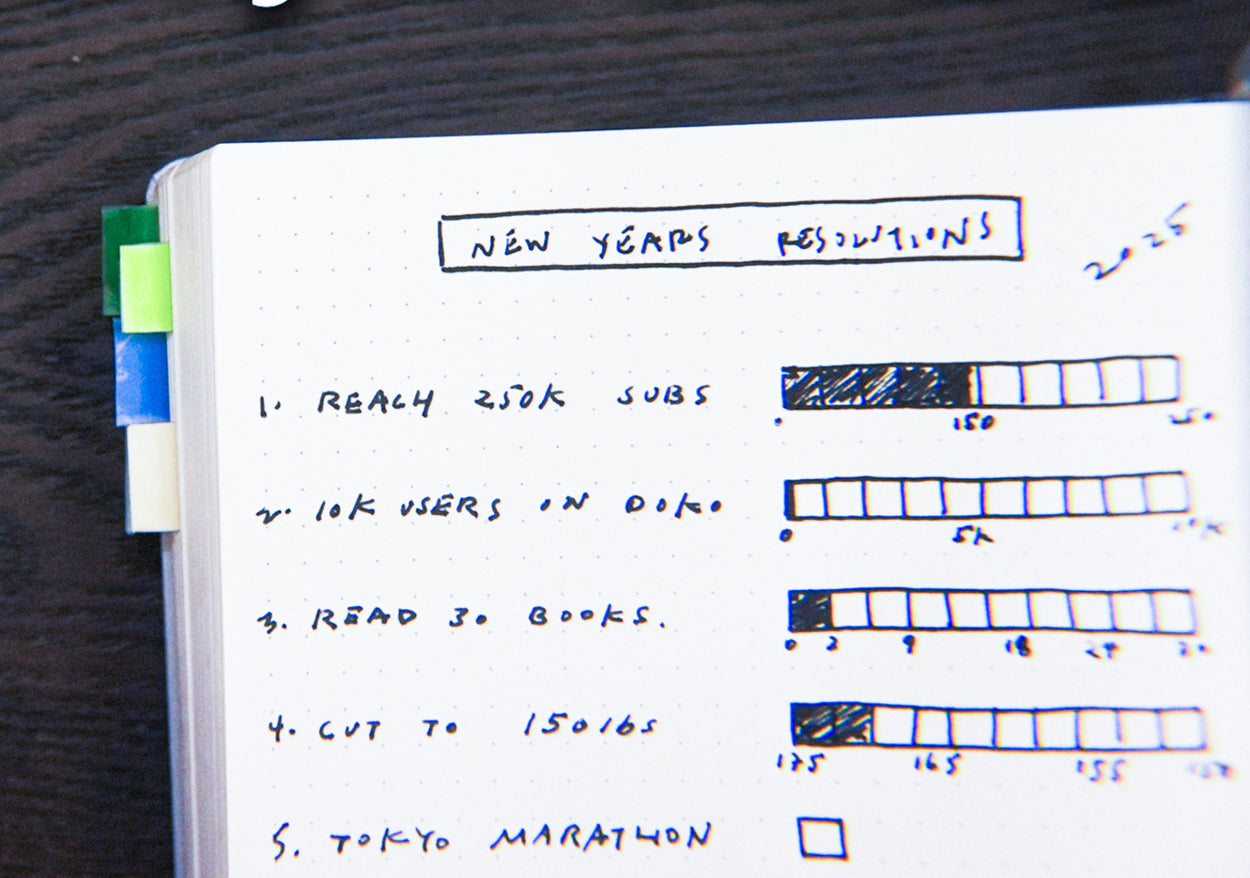 NEW YEARS RESOLUTIONS
2025
1. REACH 250K SUBS
0 150 250
2. 10K USERS ON DOKO
0 5K 10K
3. READ 30 BOOKS.
0 2 9 18 24 30
4. CUT TO 150 lbs
175 165 155 150
5. TOKYO MARATHON